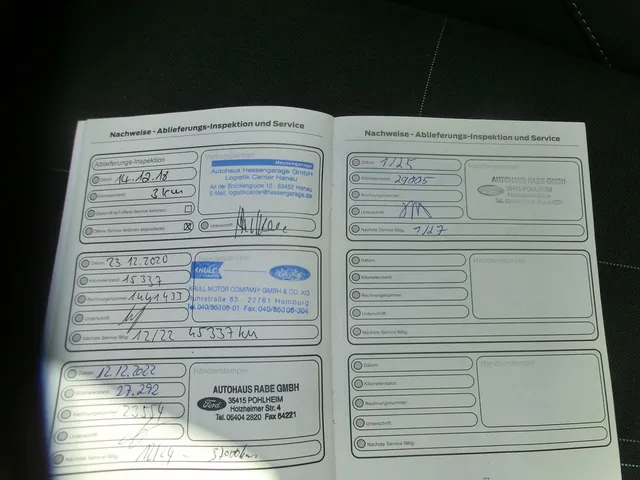 Nachweise - Ablieferungs-Inspektion und Service
Ablieferungs-Inspektion
Datum 14.12.18
Kilometerstand 3 km
Offene Service-Aktionen abgearbeitet
Unterschrift
Hessengarage
Autohaus Hessengarage GmbH
Logistik Center Hanau
An der Brückengrube 12 · 63452 Hanau
Datum 23.12.2020
Kilometerstand 15337
Rechnungsnummer 1441433
Unterschrift
Nächste Service fällig: 12/22 45337 km
KRÜLL
Ford
KRÜLL MOTOR COMPANY GMBH & CO. KG
Ruhrstraße 63 22761 Hamburg
Tel. 040/853 06-01 Fax: 040/853 06-304
Datum 12.12.2022
Kilometerstand 27.292
Rechnungsnummer 23554
Unterschrift
Nächste Service fällig: 12/24 - 57000 km
Händlerstempel
Ford
AUTOHAUS RABE GMBH
35415 POHLHEIM
Holzheimer Str. 4
Tel. 06404 2820 Fax 64221
Nachweise - Ablieferungs-Inspektion und Service
Datum 1/25
Kilometerstand 29005
Unterschrift
Nächste Service fällig: 1/27
AUTOHAUS RABE GMBH
35415 POHLHEIM
Holzheimer Str. 4
Datum
Kilometerstand
Rechnungsnummer
Unterschrift
Nächste Service fällig:
Händlerstempel
Datum
Kilometerstand
Rechnungsnummer
Unterschrift
Nächste Service fällig:
Händlerstempel